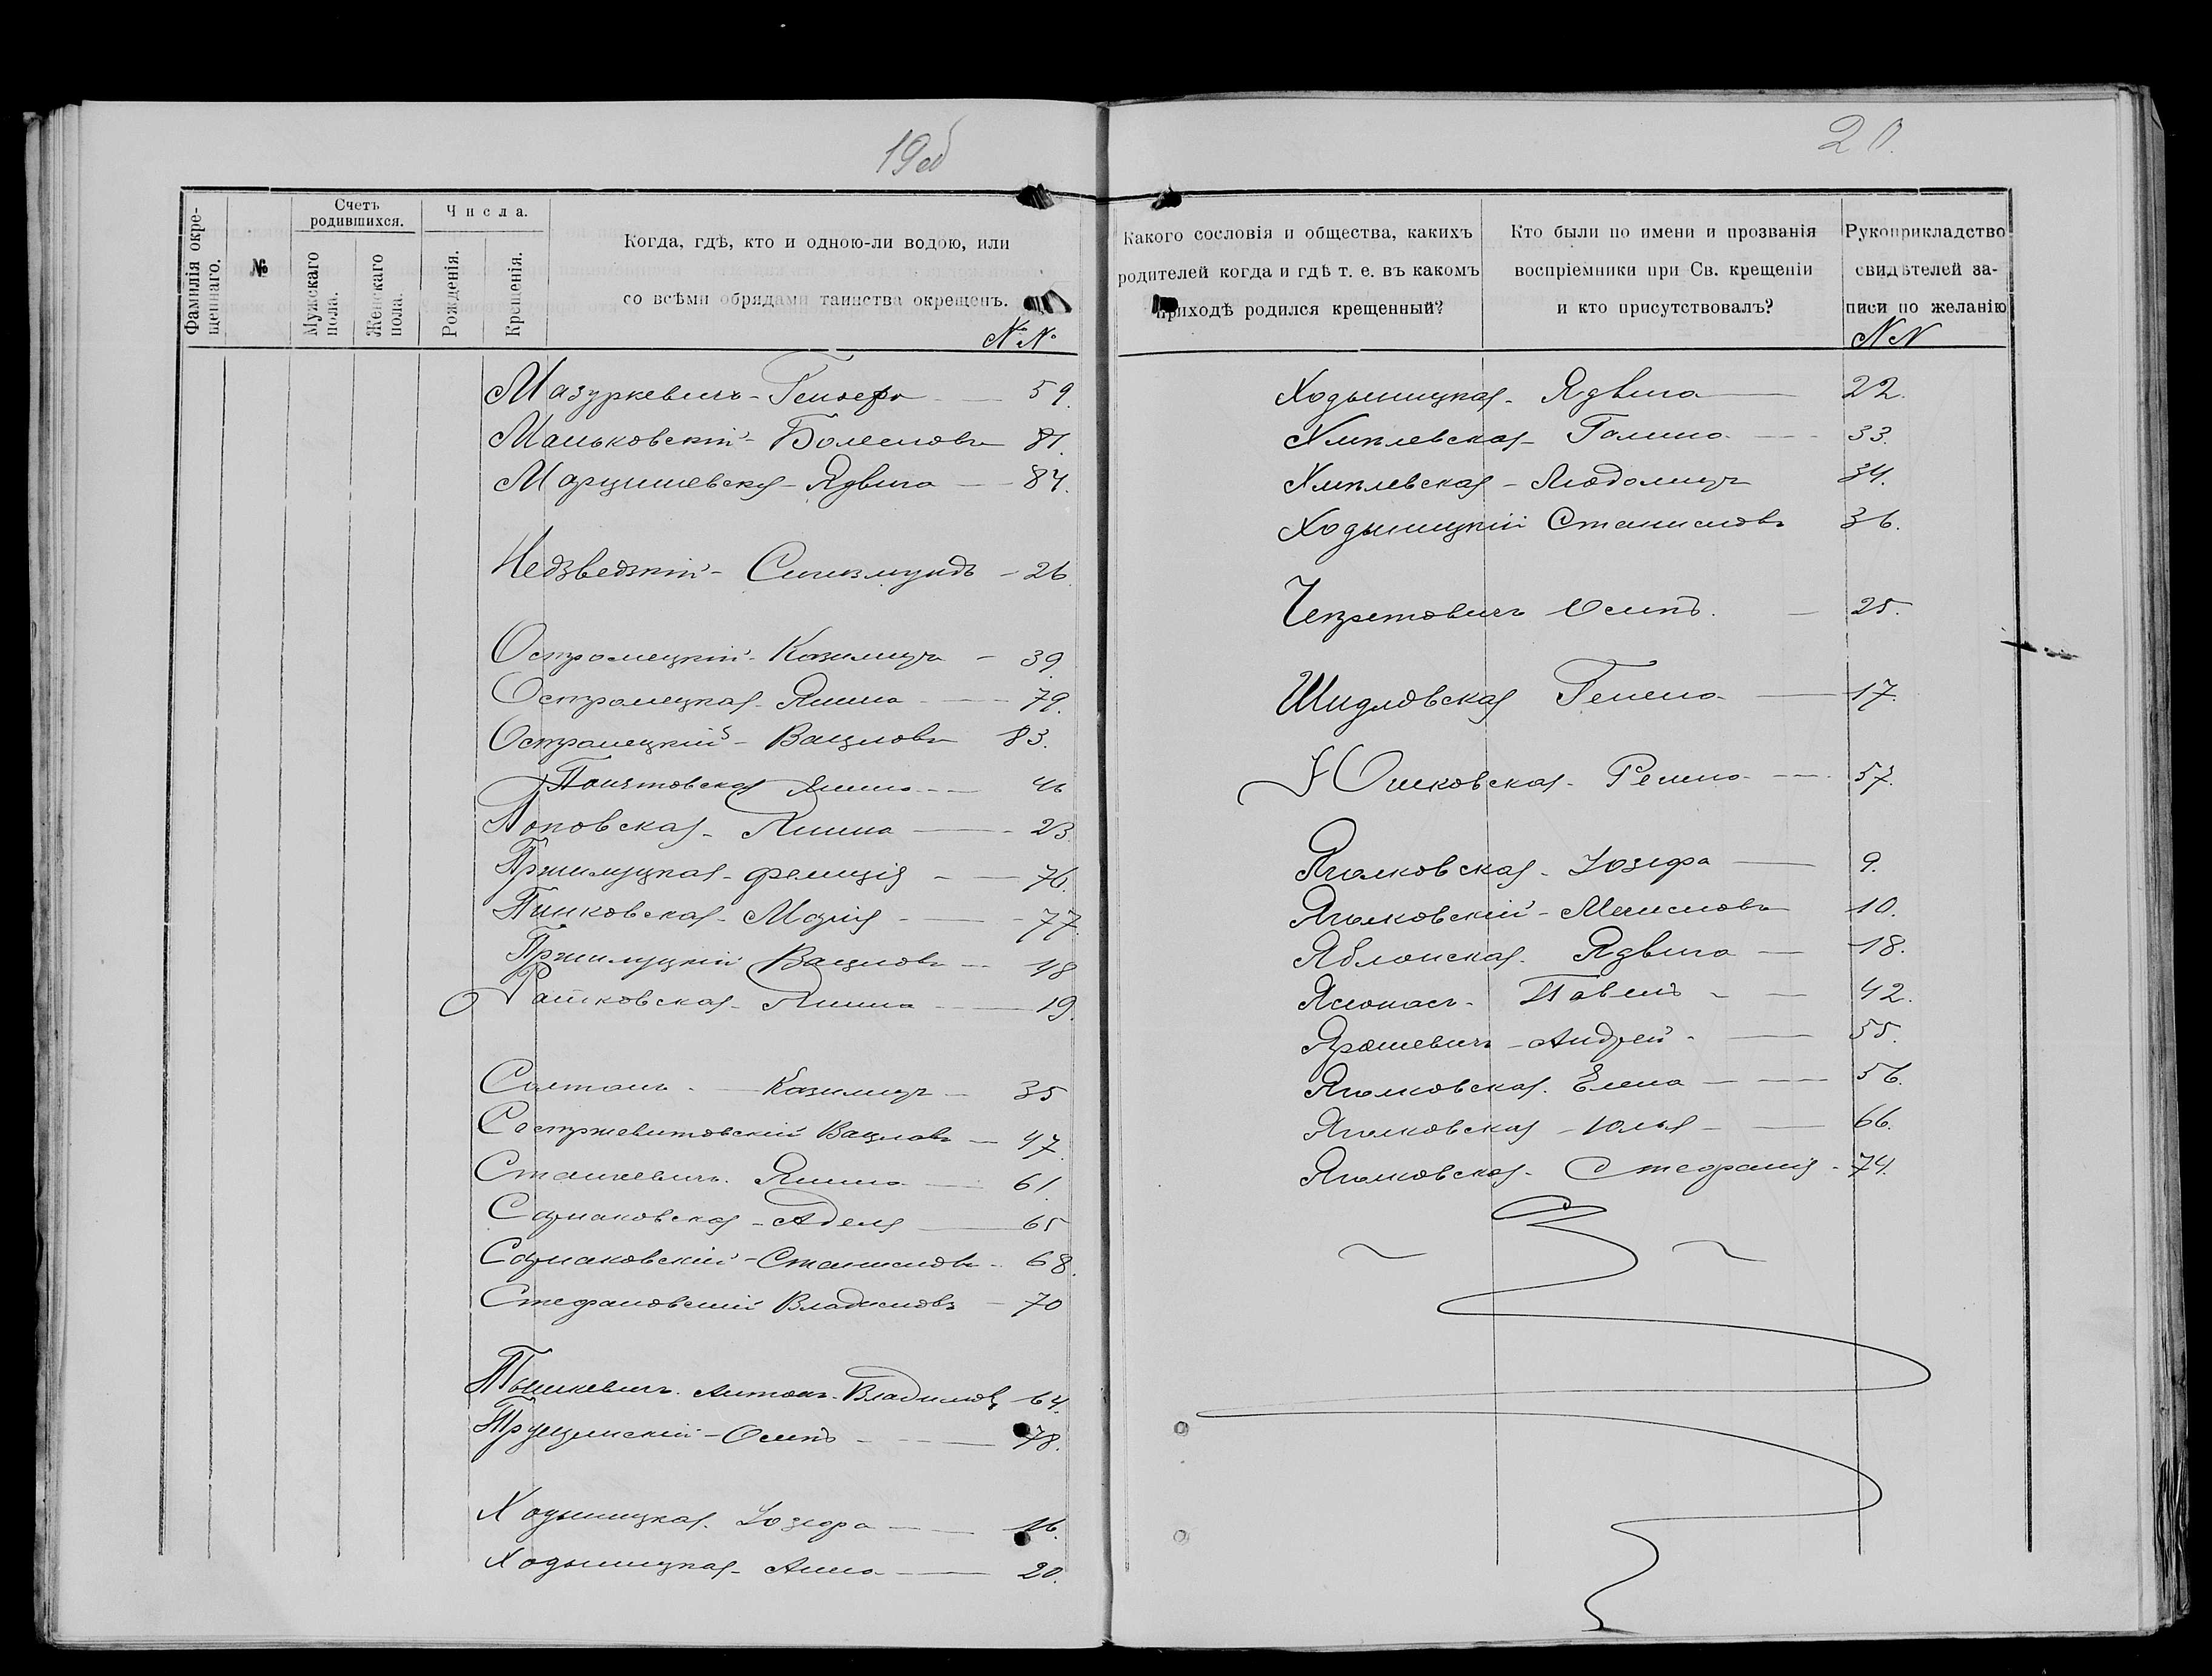 19об
20.
Фамилія окрещеннаго.
№
Счетъ родившихся.
Мужскаго пола.
Женскаго пола.
Числа.
Рожденія.
Крещенія.
Когда, гдѣ, кто и одною-ли водою, или
со всѣми обрядами таинства окрещенъ.
№№
Мазуркевичъ - Генефа — 59.
Маньковскій - Болеславъ 81.
Марцишевская - Ядвига — 84.
Недзведзкій - Сигизмундъ — 26.
Остромецкій - Казимиръ — 39.
Остромецкая - Янина — 79.
Остромецкій - Вацлавъ 83.
Янина — 46
Поповская - Янина — 23.
Пржилуцкая - Фелиція — 76.
Пинковская - Марія — 77.
Пржилуцкій Вацлавъ — 48
Ратковская - Янина — 19.
Солтанъ - Казимиръ — 35
Вацлавъ — 47.
Станкевичъ - Янина — 61.
Сармаковская - Аделя — 65
Сармаковскій - Станиславъ - 68.
Стефановскій Владиславъ — 70
Тышкевичъ - Антонъ - Владиславъ 64.
Осипъ — 78.
Ходыницкая - Іозефа — 16.
Ходыницкая - Анна — 20.
Какого сословія и общества, какихъ
родителей когда и гдѣ т. е. въ какомъ
приходѣ родился крещенный?
Кто были по имени и прозванія
воспріемники при Св. крещеніи
и кто присутствовалъ?
Рукоприкладство
свидѣтелей за-
писи по желанію
№№
Ходыницкая - Ядвига — 22.
Хмплевская - Галина — 33.
Хмплевская - Людомира 34.
Ходыницкій Станиславъ 36.
Осипъ. — 25.
Шидловская Гелена — 17.
Юшковская - Регина — 57.
Яголковская - Іозефа — 9.
Яголковскій - Мечиславъ 10.
Яблонская - Ядвига — 18.
Павелъ — 42.
Ярошевичъ - Андрей — 55.
Яголковская - Елена — 56.
Яголковская - Юлья — 66.
Яголковская - Стефанія - 74.